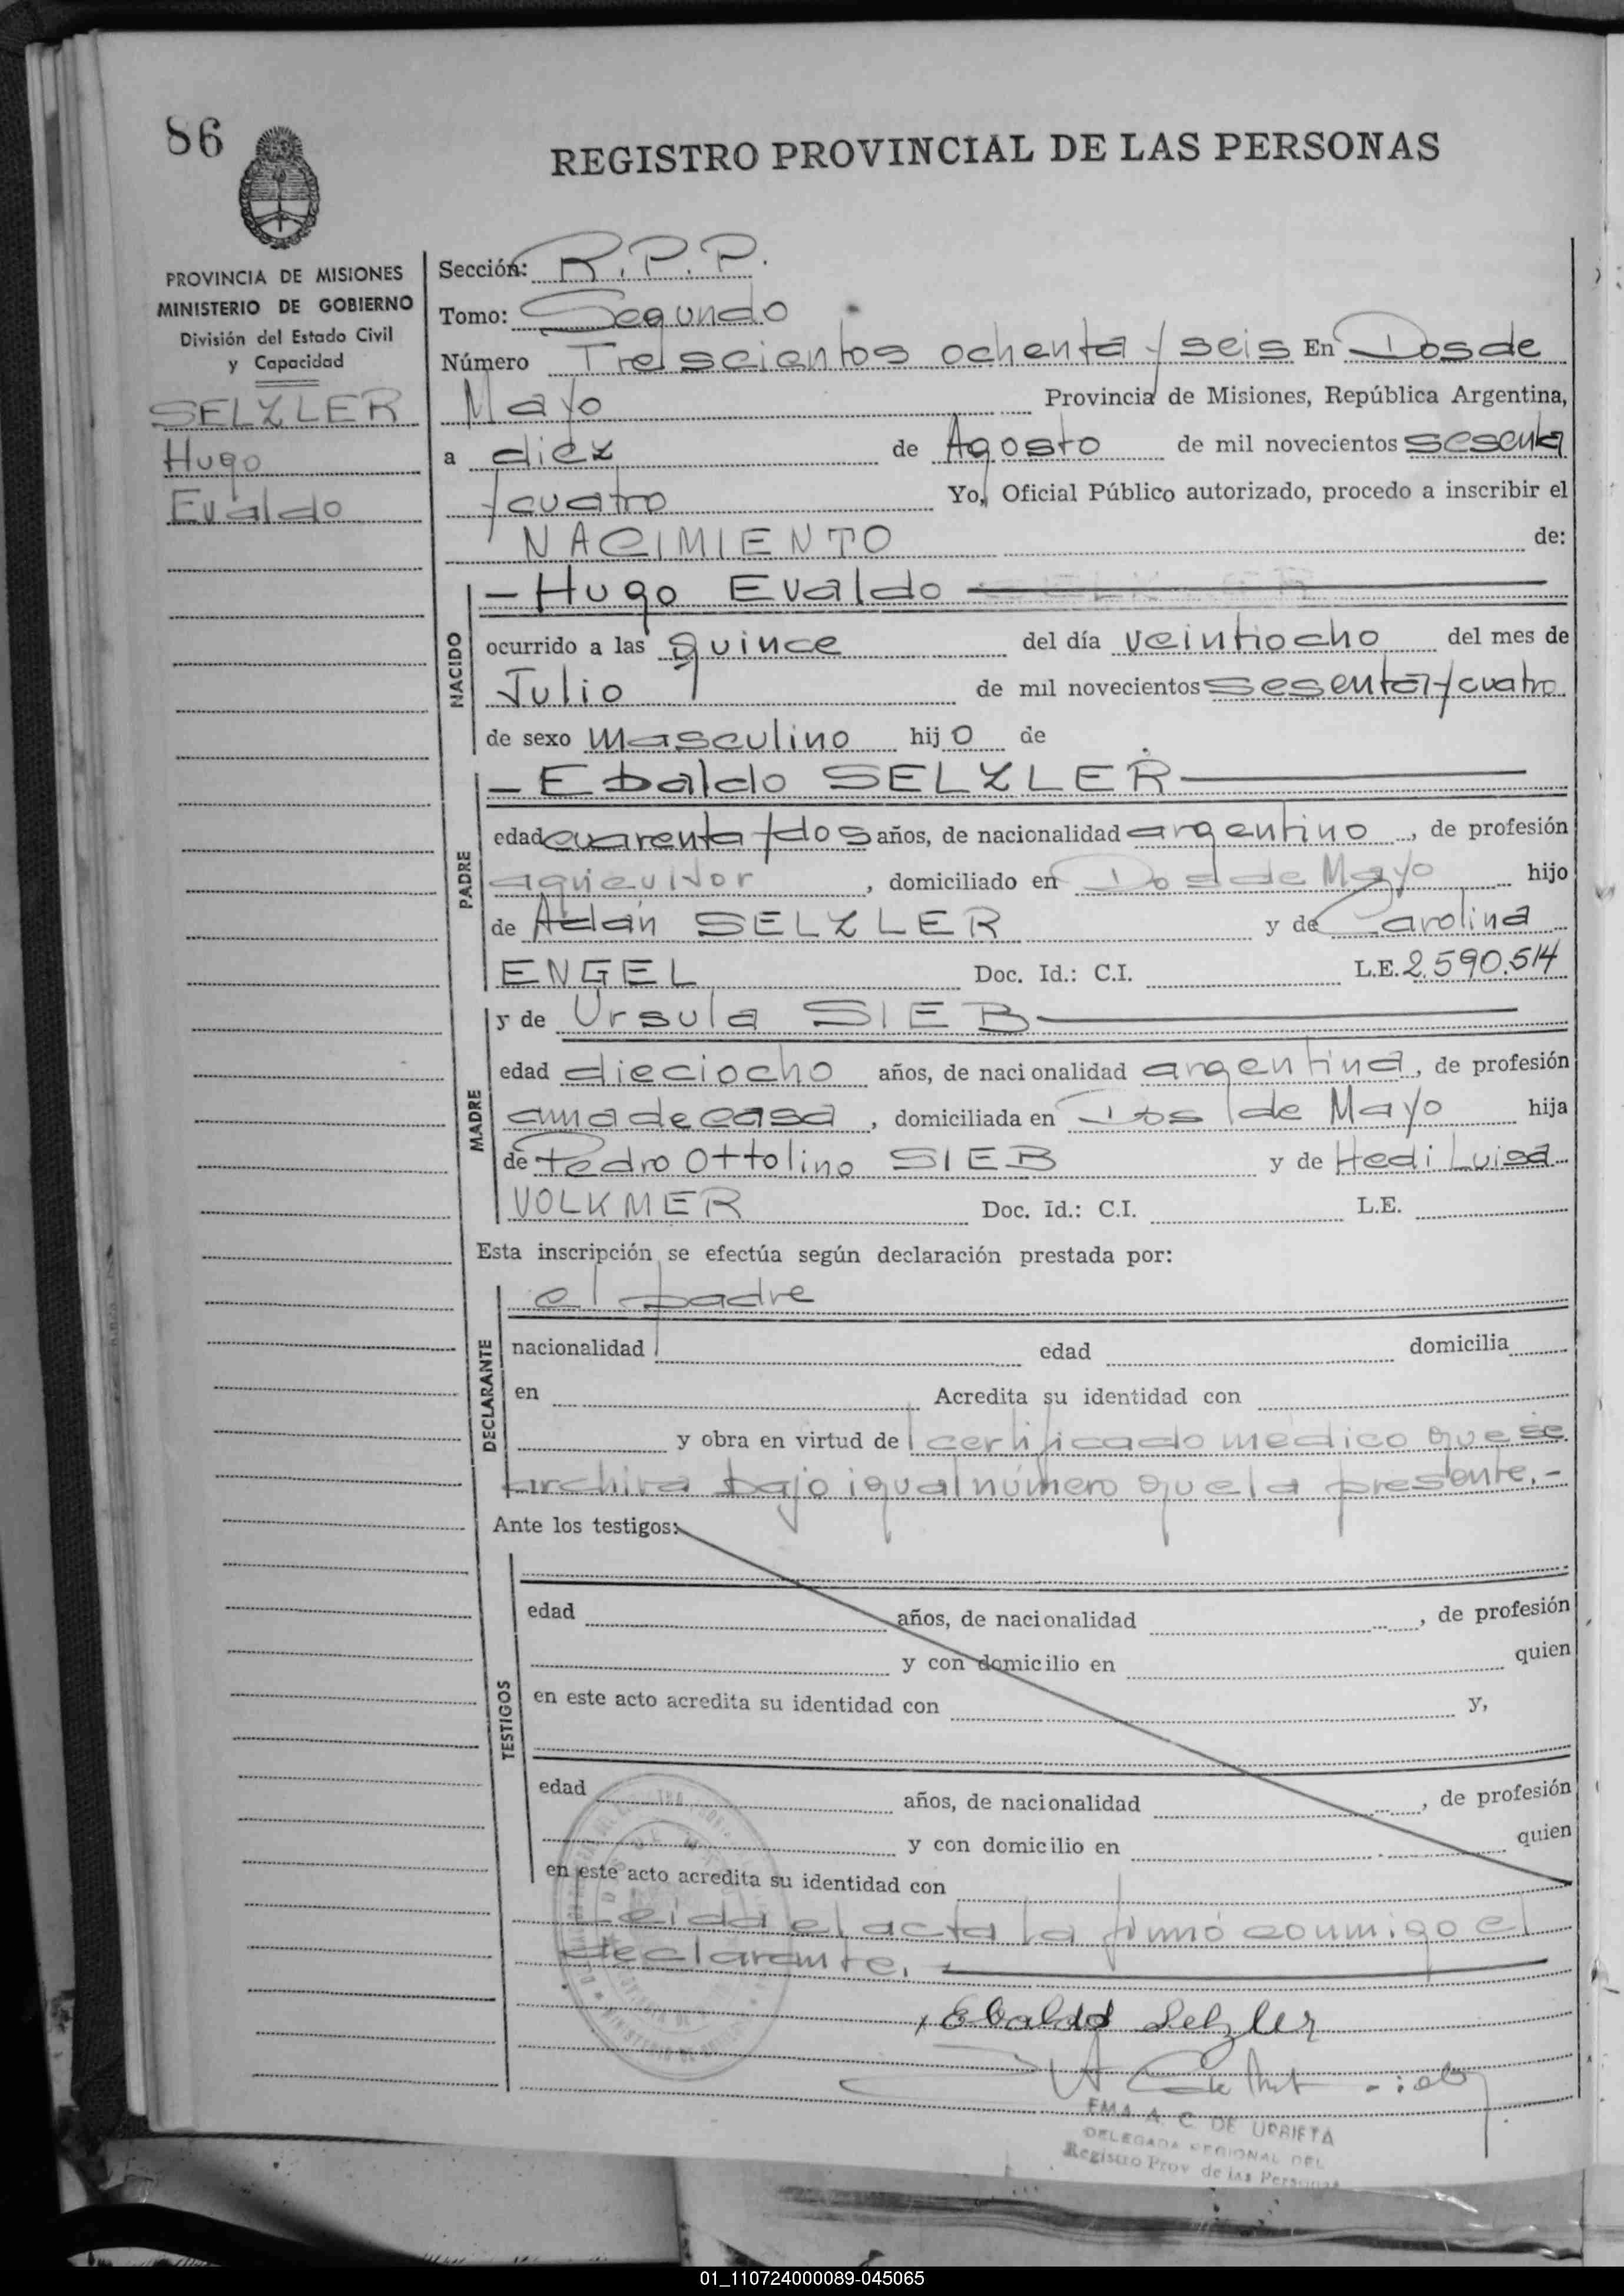 86
REGISTRO PROVINCIAL DE LAS PERSONAS
PROVINCIA DE MISIONES
MINISTERIO DE GOBIERNO
División del Estado Civil
y Capacidad
SELZLER
Hugo
Evaldo
Sección: R.P.P.
Tomo: Segundo
Número Trelscientos ochenta y seis En Dos de
Mayo Provincia de Misiones, República Argentina,
a diez de Agosto de mil novecientos sesenta
y cuatro Yo, Oficial Público autorizado, procedo a inscribir el
NACIMIENTO de:
NACIDO
- Hugo Evaldo
ocurrido a las quince del día veintiocho del mes de
Julio de mil novecientos sesenta y cuatro
de sexo masculino hijo de
PADRE
- Ebaldo SELZLER
edad cuarenta y dos años, de nacionalidad argentino, de profesión
agricultor, domiciliado en Dos de Mayo hijo
de Adán SELZLER y de Carolina
ENGEL Doc. Id.: C.I. L.E. 2.590.514
MADRE
y de Ursula SIEB
edad dieciocho años, de nacionalidad argentina, de profesión
ama de casa, domiciliada en Dos de Mayo hija
de Pedro Ottolino SIEB y de Hedi Luisa
VOLKMER Doc. Id.: C.I. L.E.
Esta inscripción se efectúa según declaración prestada por:
DECLARANTE
el padre
nacionalidad edad domicilia
en Acredita su identidad con
y obra en virtud de certificado médico que se
archiva bajo igual número que la presente.-
Ante los testigos:
TESTIGOS
edad años, de nacionalidad , de profesión
y con domicilio en quien
en este acto acredita su identidad con y,
edad años, de nacionalidad , de profesión
y con domicilio en quien
en este acto acredita su identidad con
Leida el acta la firmó conmigo el
declarante.
Ebaldo Selzler
EMA A. C. DE URRIETA
DELEGADA REGIONAL DEL
Registro Prov. de las Personas
01_110724000089-045065